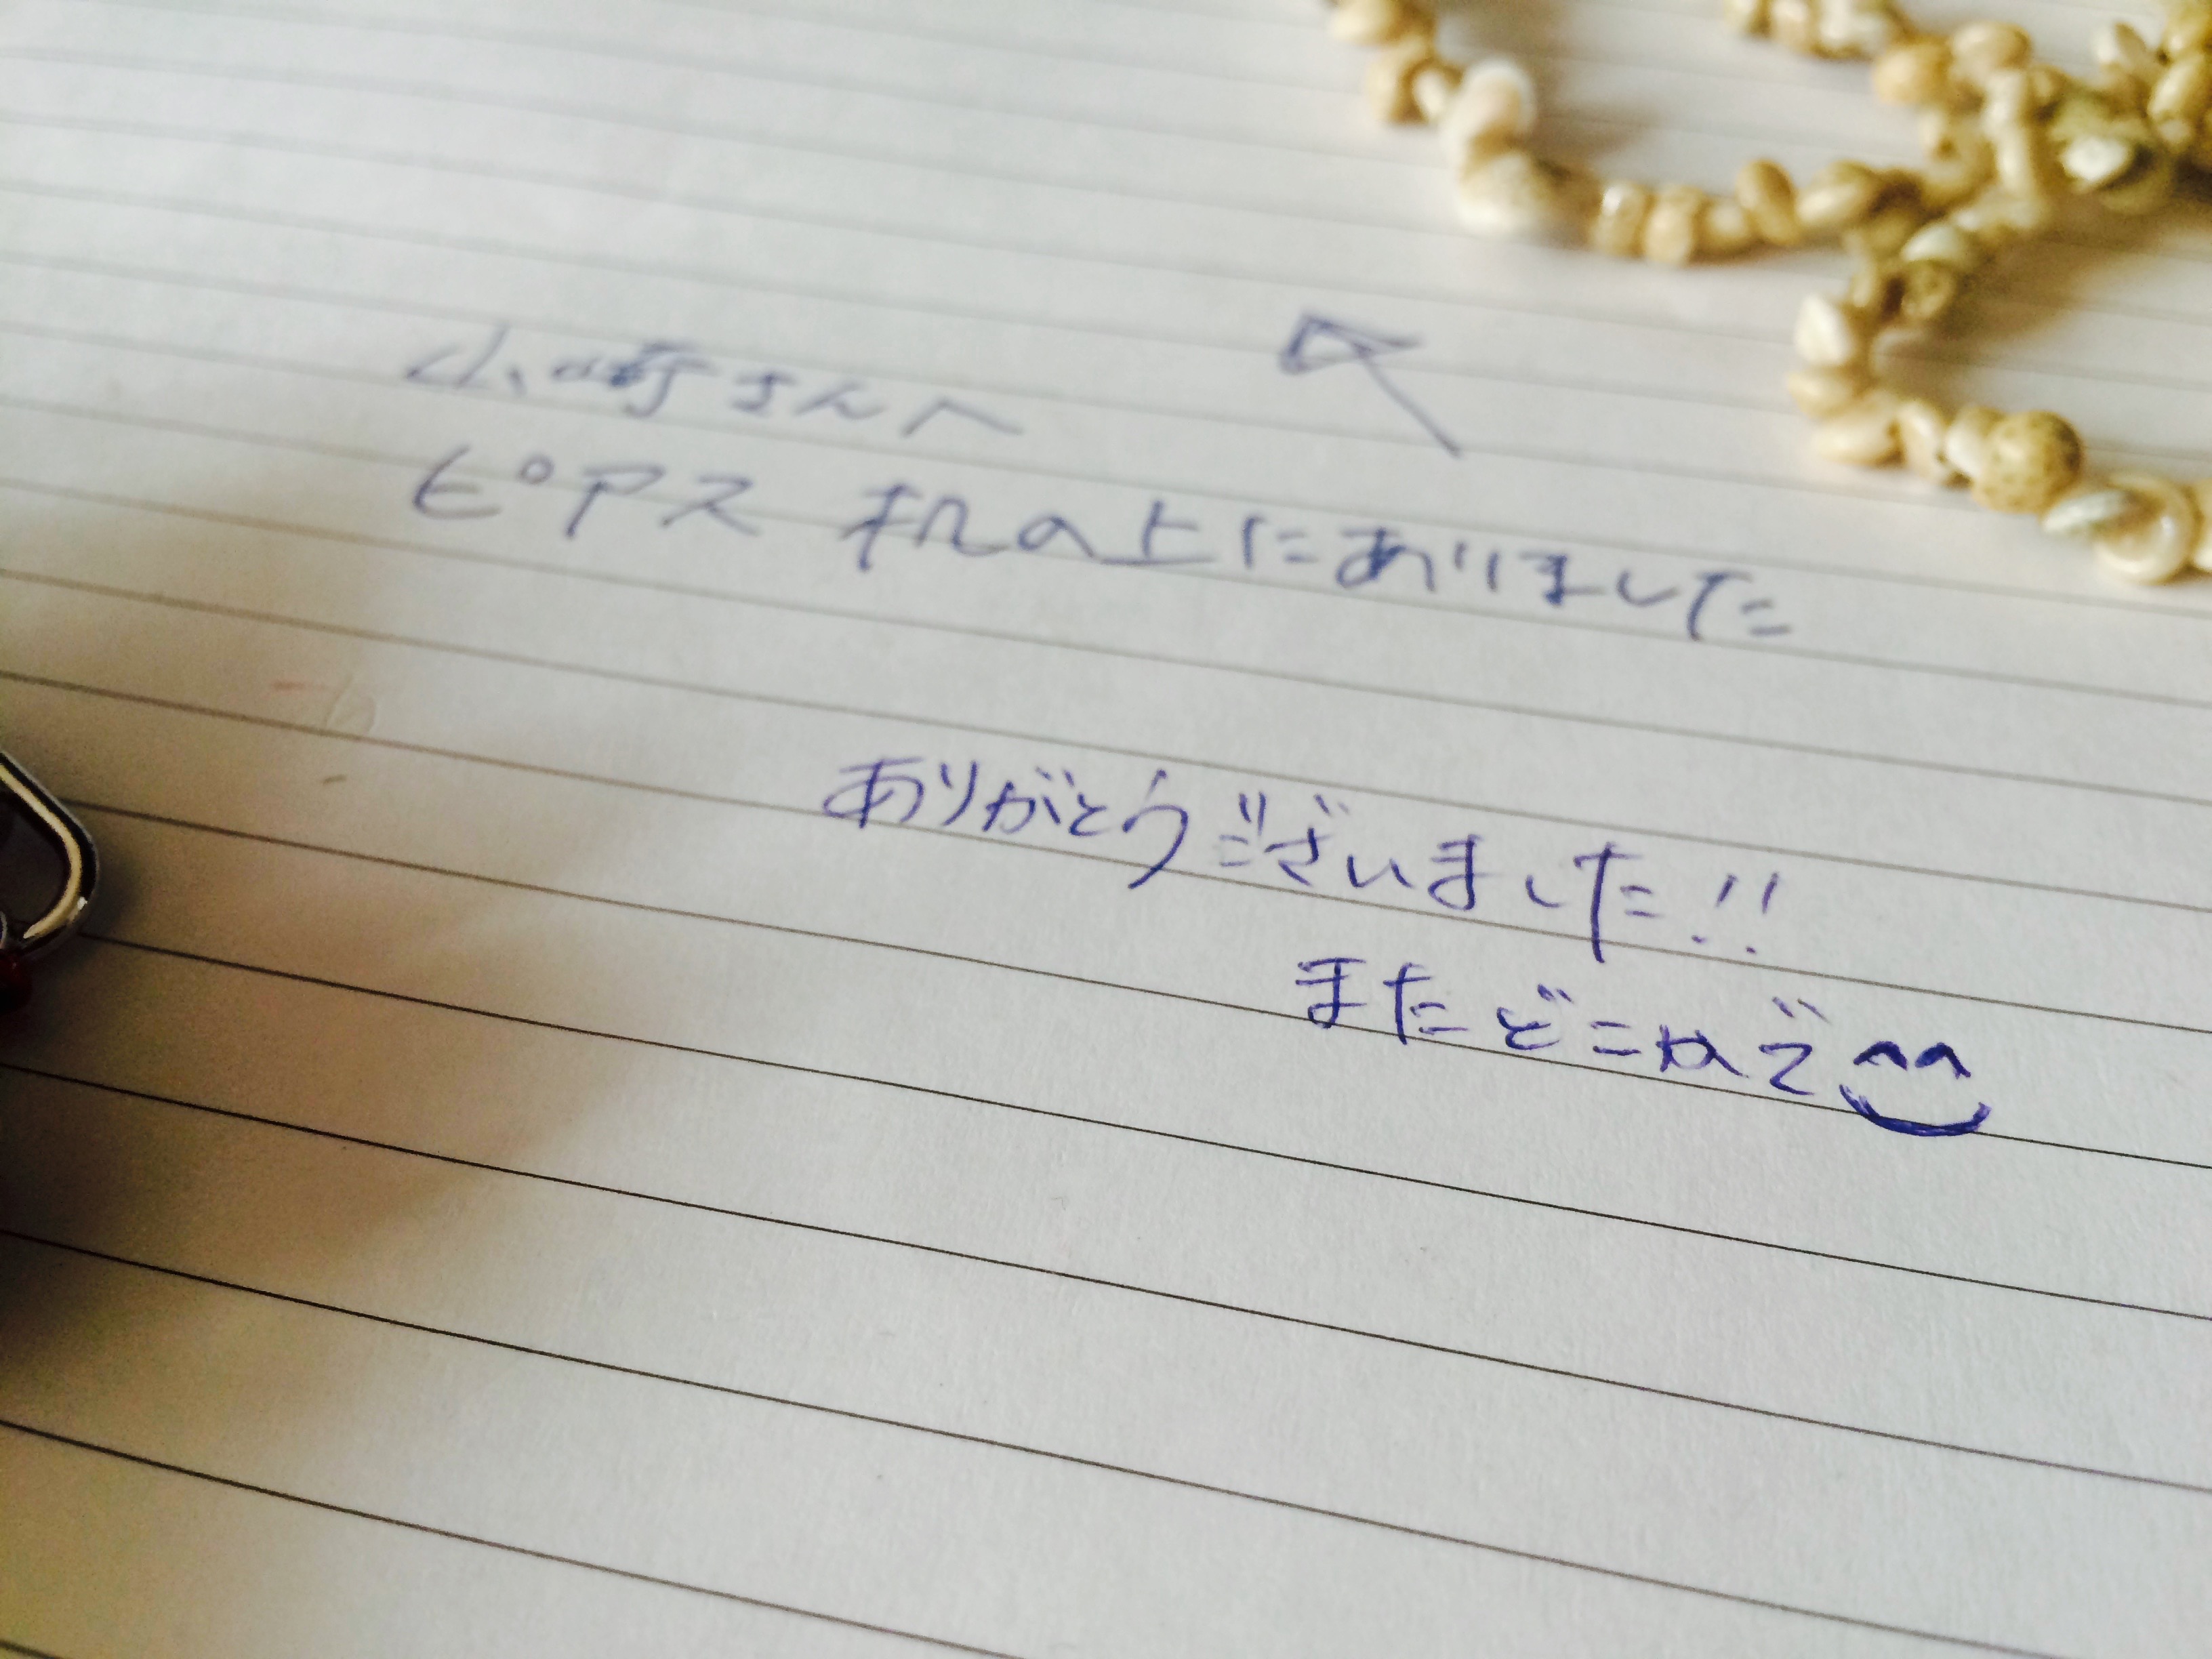 小崎さんへ
ピアス 机の上にありました
ありがとうございました!!
またどこかで